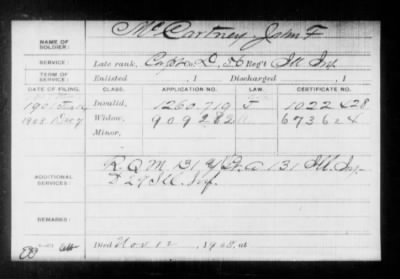 NAME OF SOLDIER: McCartney, John F
SERVICE: Late rank, Co. D, 56 Reg't Ill Inf.
TERM OF SERVICE: Enlisted , 1 Discharged , 1
DATE OF FILING. CLASS. APPLICATION NO. LAW. CERTIFICATE NO.
1901 Invalid, 1260.719 J 1022 428
1908 Dec 7 Widow, 909 282 673624
Minor,
ADDITIONAL SERVICES: R.Q.M. 131 & Co. A 131 Ill. Inf.
27 Ill. Inf.
REMARKS:
Died Nov 12, 1908, at